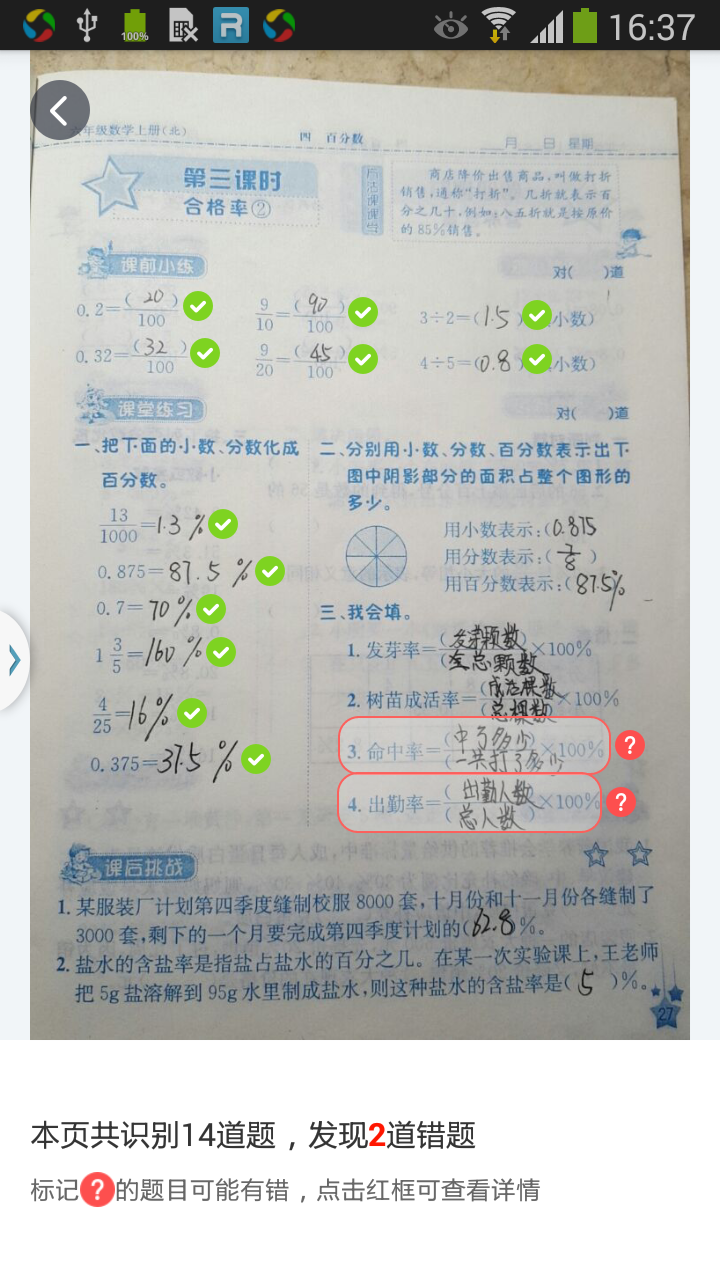 100%
16:37
六年级数学上册(北)
四 百分数
月 日 星期
第三课时
合格率②
商店降价出售商品,叫做打折
销售,通称“打折”。几折就表示百
分之几十,例如:八五折就是按原价
的85%销售。
课前小练
对( )道
0.2=(20)/100
9/10=(90)/100
3÷2=(1.5)小数)
0.32=(32)/100
9/20=(45)/100
4÷5=(0.8)小数)
课堂练习
对( )道
一、把下面的小数、分数化成
百分数。
13/1000=1.3%
0.875=87.5%
0.7=70%
1 3/5=160%
4/25=16%
0.375=37.5%
二、分别用小数、分数、百分数表示出下
图中阴影部分的面积占整个图形的
多少。
用小数表示:(0.875
用分数表示:(7/8)
用百分数表示:(87.5%
三、我会填。
1. 发芽率=(发芽颗数)/(总颗数)×100%
2. 树苗成活率=(成活棵数)/(总棵数)×100%
3. 命中率=(中了多少)/(一共打了多少×100%
4. 出勤率=(出勤人数)/(总人数)×100%
课后挑战
1. 某服装厂计划第四季度缝制校服8000套,十月份和十一月份各缝制了
3000套,剩下的一个月要完成第四季度计划的(62.8%。
2. 盐水的含盐率是指盐占盐水的百分之几。在某一次实验课上,王老师
把5g盐溶解到95g水里制成盐水,则这种盐水的含盐率是(5)%。
27
本页共识别14道题,发现2道错题
标记?的题目可能有错,点击红框可查看详情